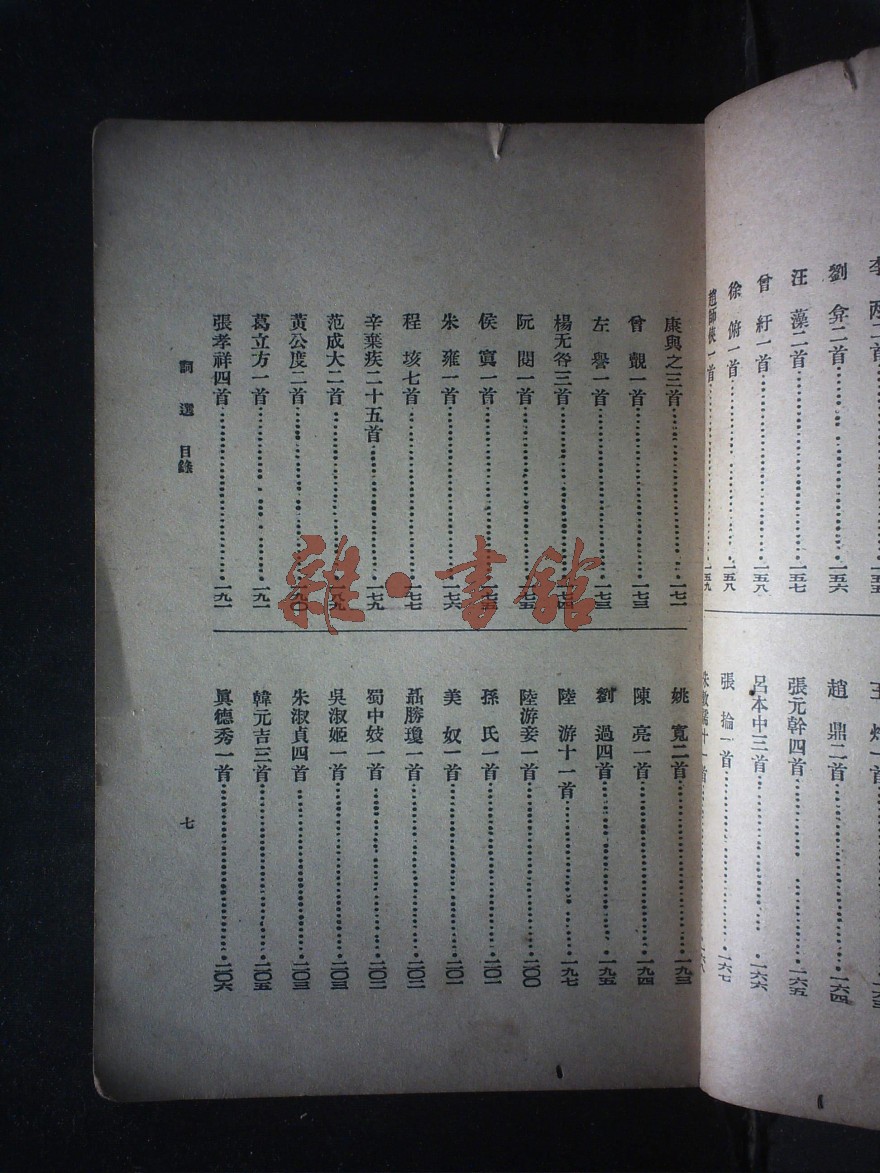 李
劉弇二首……一五六
汪藻二首……一五七
曾紆一首……一五八
徐俯一首……一五八
趙師俠一首……一五九
趙鼎二首……一六四
張元幹四首……一六五
呂本中三首……一六六
張掄一首……一六七
康與之三首……一七一
曾覿一首……一七三
左譽一首……一七三
楊无咎三首……一七四
阮閱一首……一七五
侯寘一首……一七五
朱雍一首……一七六
程垓七首……一七七
辛棄疾二十五首……一七九
范成大二首……一八九
黃公度二首……一九〇
葛立方一首……一九一
張孝祥四首……一九一
姚寬二首……一九三
陳亮一首……一九四
劉過四首……一九五
陸游十一首……一九七
陸游妾一首……二〇〇
孫氏一首……二〇一
美奴一首……二〇一
聶勝瓊一首……二〇二
蜀中妓一首……二〇二
吳淑姬一首……二〇三
朱淑貞四首……二〇三
韓元吉三首……二〇五
眞德秀一首……二〇六
詞選 目錄
七
雜·書館